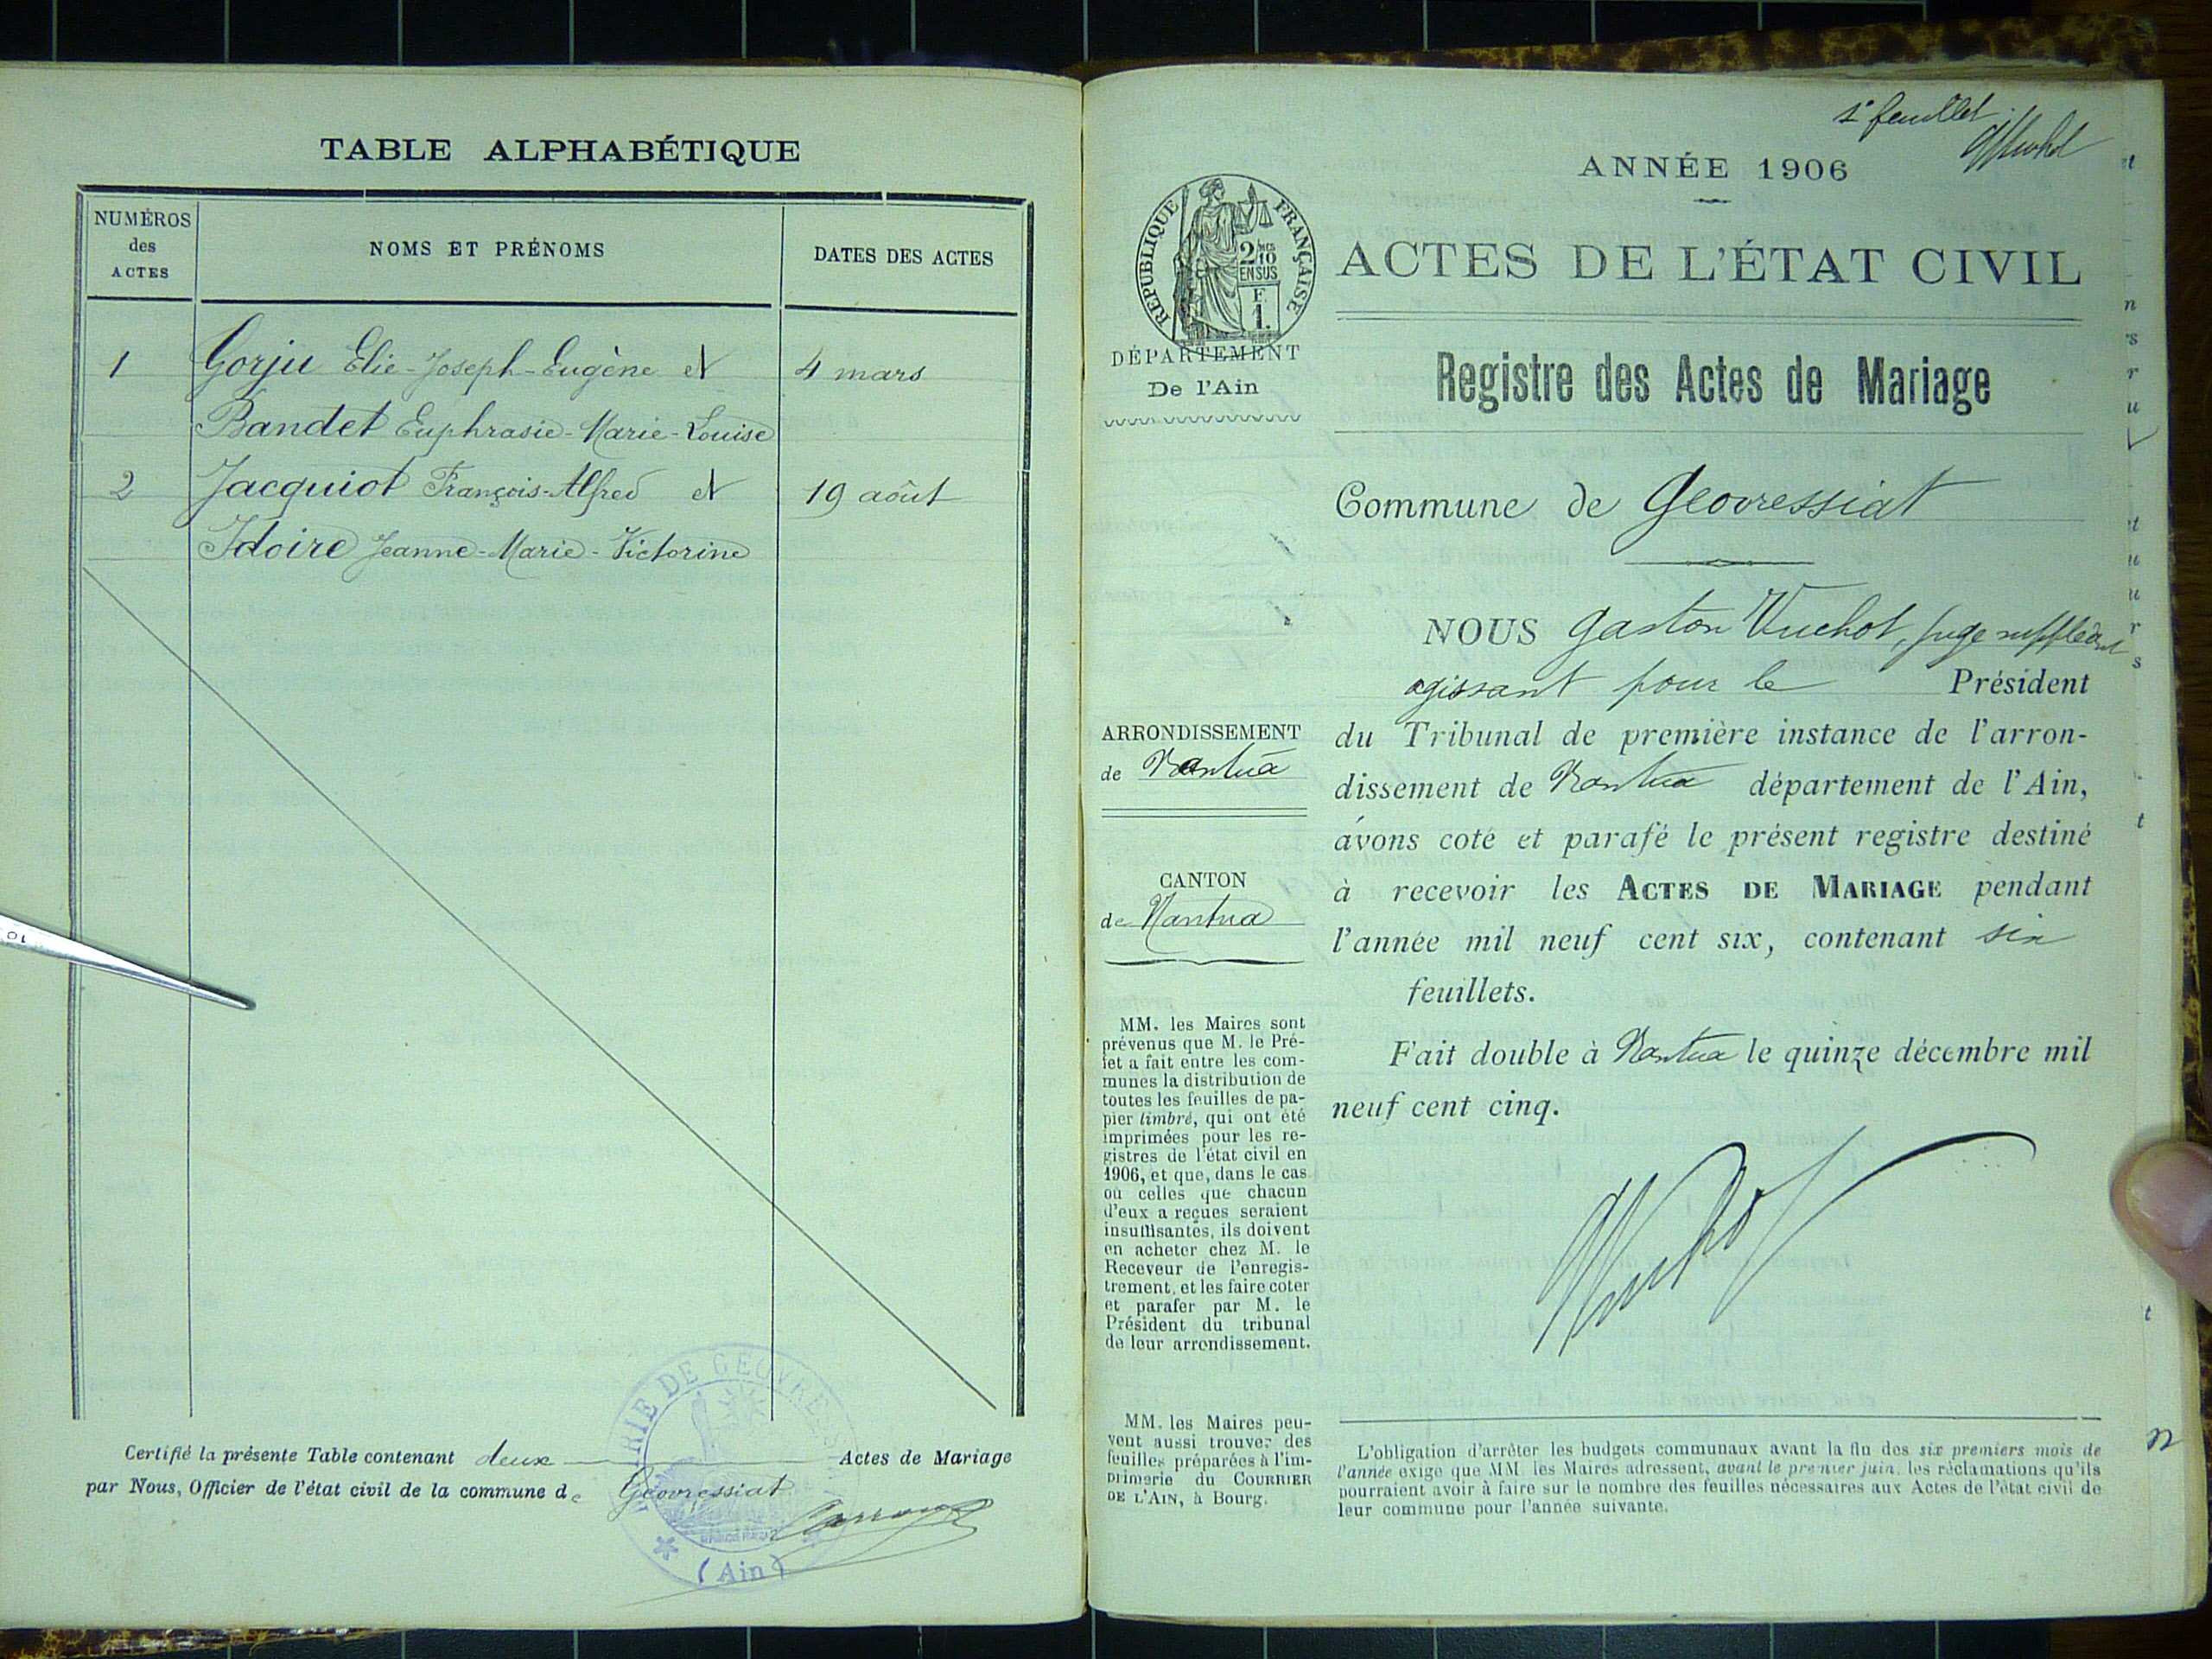 TABLE ALPHABÉTIQUE
NUMÉROS
des
ACTES
NOMS ET PRÉNOMS
DATES DES ACTES
1 Gorju Elie-Joseph-Eugène et 4 mars
Bandet Euphrasie-Marie-Louise
2 Jacquiot François-Alfred et 19 août
Idoire Jeanne-Marie-Victorine
Certifié la présente Table contenant deux Actes de Mariage
par Nous, Officier de l'état civil de la commune de Géovressiat
(Ain)
1er feuillet
ANNÉE 1906
RÉPUBLIQUE FRANÇAISE
2/10
EN SUS
F.
1.
ACTES DE L'ÉTAT CIVIL
DÉPARTEMENT
De l'Ain
Registre des Actes de Mariage
Commune de Geovressiat
NOUS Gaston Vuchot, juge suppléant
agissant pour le Président
du Tribunal de première instance de l'arron-
dissement de Nantua département de l'Ain,
avons coté et parafé le présent registre destiné
à recevoir les ACTES DE MARIAGE pendant
l'année mil neuf cent six, contenant six
feuillets.
Fait double à Nantua le quinze décembre mil
neuf cent cinq.
ARRONDISSEMENT
de Nantua
CANTON
de Nantua
MM. les Maires sont
prévenus que M. le Pré-
fet a fait entre les com-
munes la distribution de
toutes les feuilles de pa-
pier timbré, qui ont été
imprimées pour les re-
gistres de l'état civil en
1906, et que, dans le cas
où celles que chacun
d'eux a reçues seraient
insuffisantes, ils doivent
en acheter chez M. le
Receveur de l'enregis-
trement, et les faire coter
et parafer par M. le
Président du tribunal
de leur arrondissement.
MM. les Maires peu-
vent aussi trouver des
feuilles préparées à l'im-
primerie du COURRIER
DE L'AIN, à Bourg.
L'obligation d'arrêter les budgets communaux avant la fin des six premiers mois de
l'année exige que MM. les Maires adressent, avant le premier juin, les réclamations qu'ils
pourraient avoir à faire sur le nombre des feuilles nécessaires aux Actes de l'état civil de
leur commune pour l'année suivante.
10